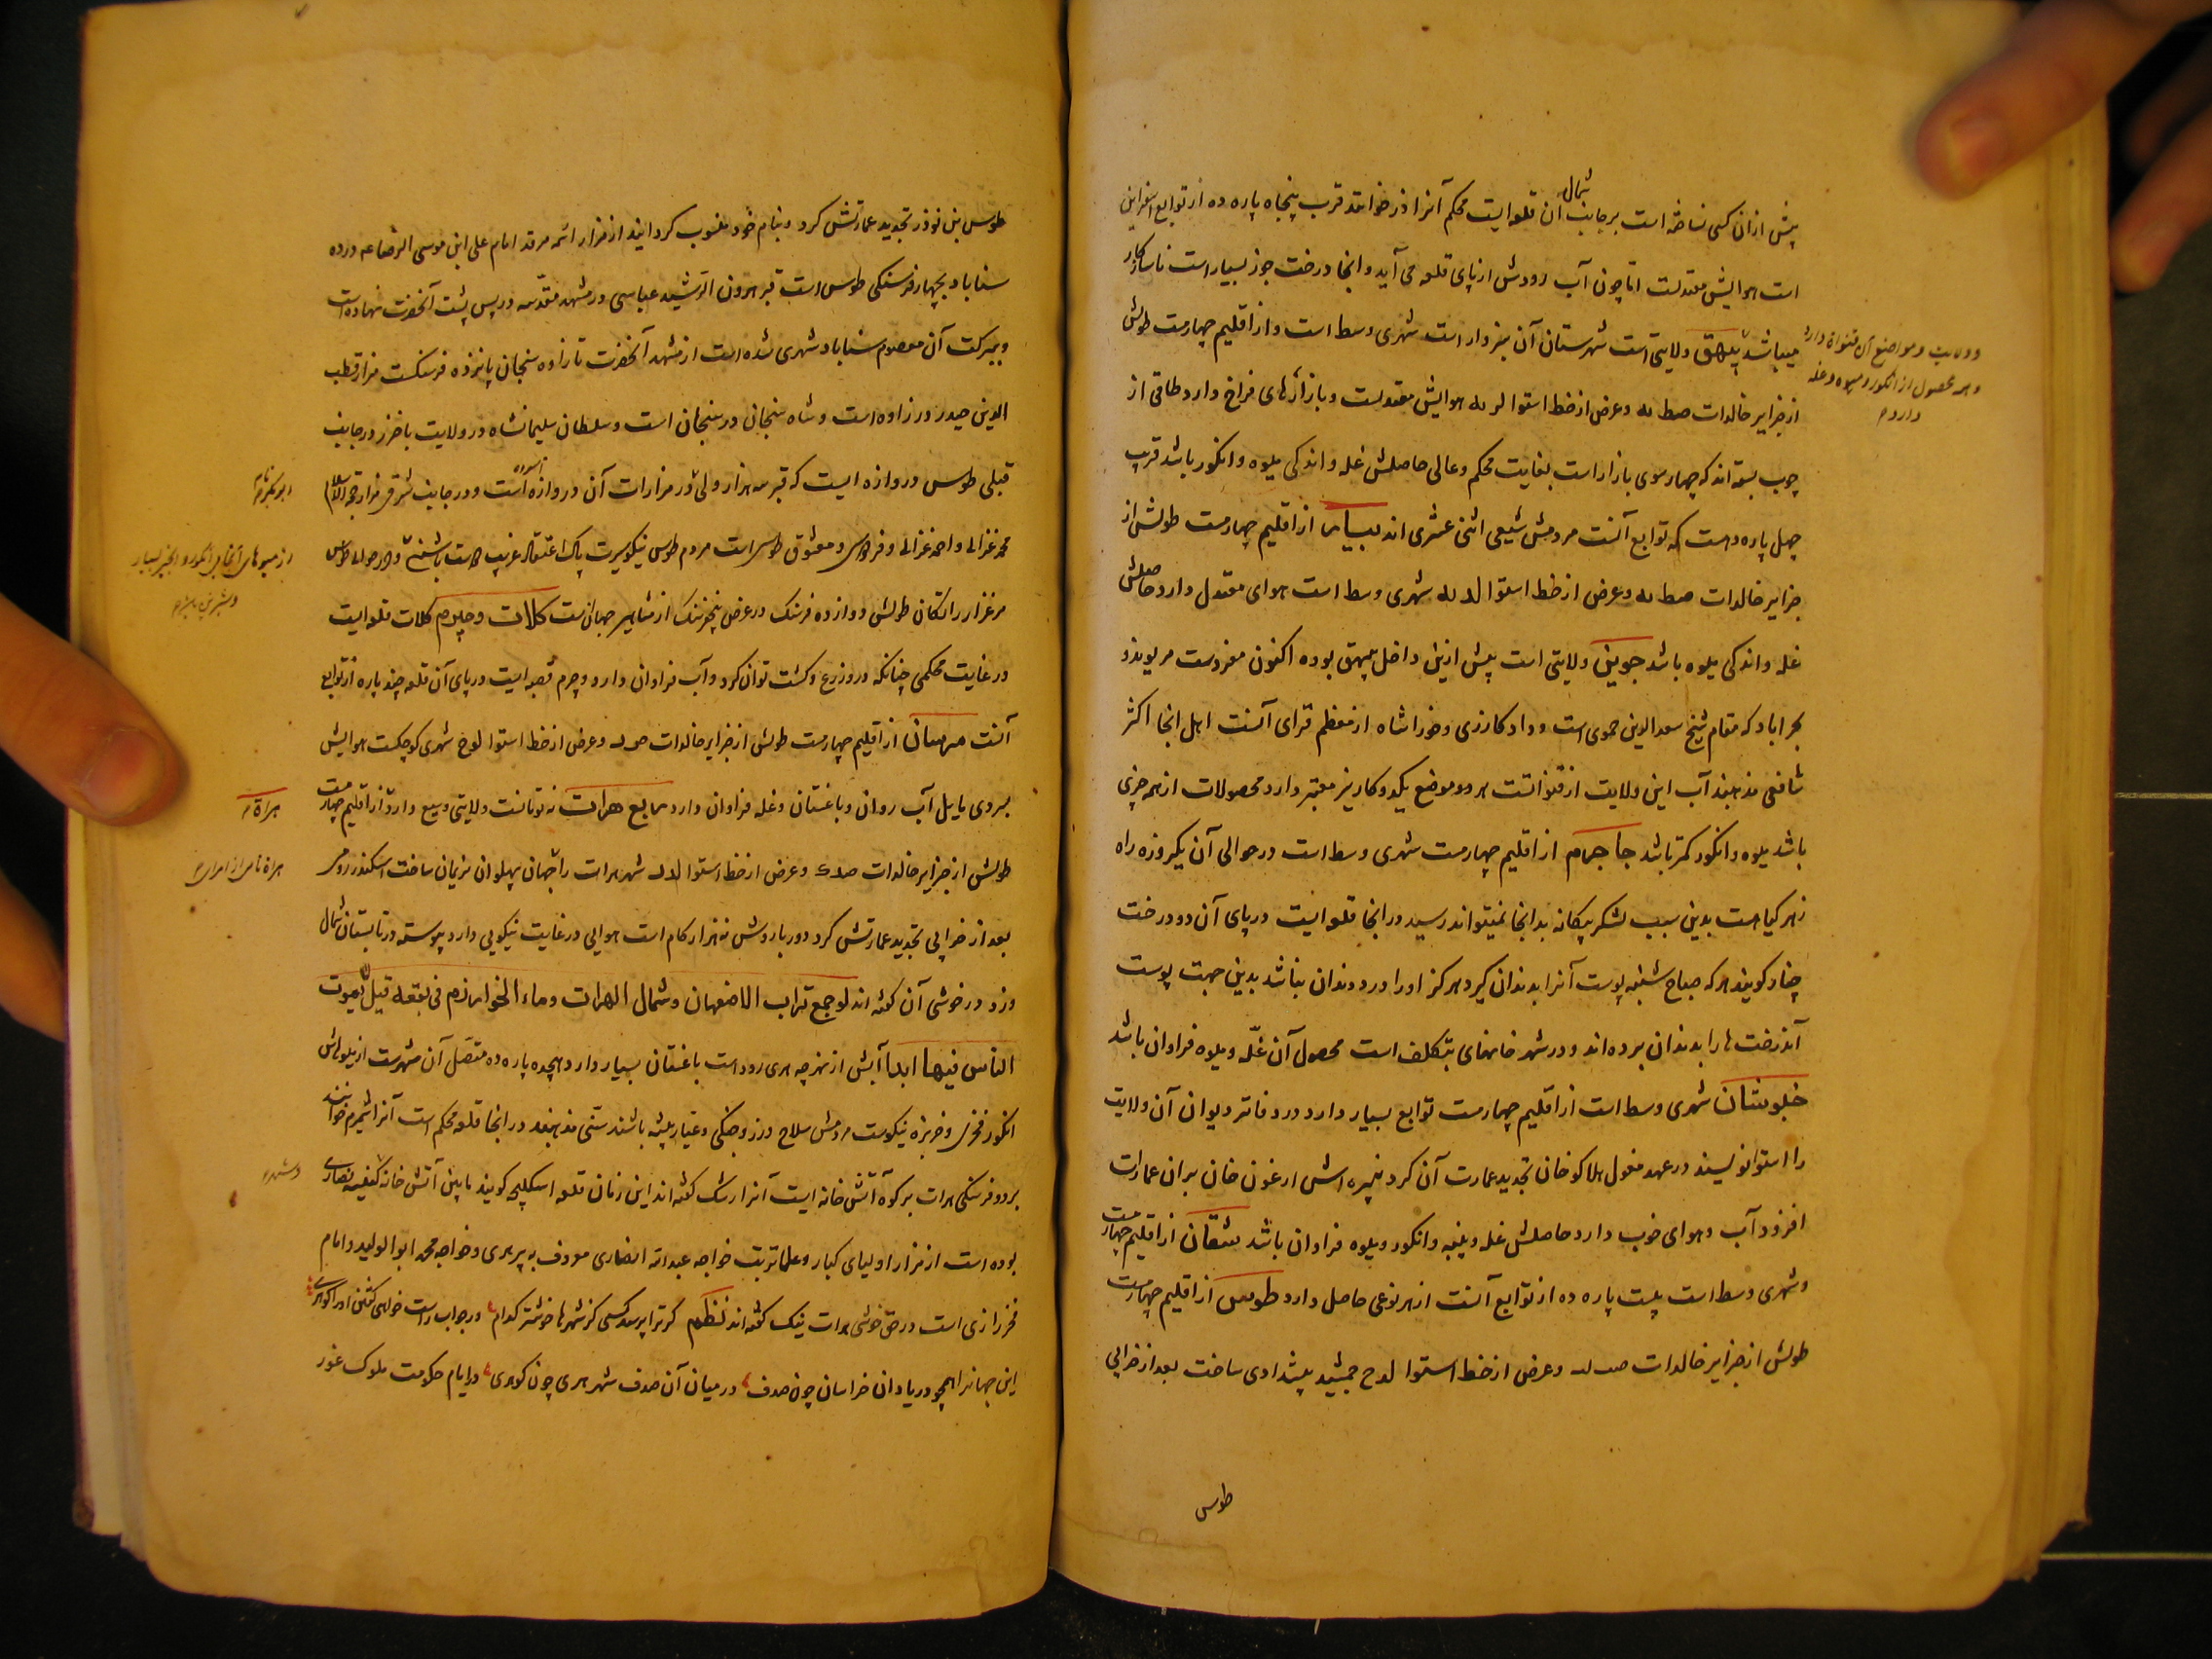 شمال
پیش ازان کسی نساخته است بر جانب آن قلعه ایست محکم آنرا دز خوانند قرب پنجاه پاره ده از توابع اسفراین
است هوایش معتدلست اما چون آب رودش از پای قلعه می آید و انجا درخت جوز بسیار است ناسازکار
میباشد بیهق ولایتی است شهرستان آن سبزوار است شهری وسط است و از اقلیم چهارمست طولش
از جزایر خالدات صط له و عرض از خط استوا لو له هوایش معتدلست و بازارهای فراخ دارد طاقی از
چوب بسته اند که چهار سوی بازار است بغایت محکم و عالی حاصلش غله و اندکی میوه و انکور باشد قرب
چهل پاره دهست که توابع آنست مردمش شیعی اثنی عشری اند بیار از اقلیم چهارمست طولش از
جزایر خالدات صط له و عرض از خط استوا لد له شهری وسط است هوای معتدل دارد حاصلش
غله و اندکی میوه باشد جوین ولایتی است پیش ازین داخل بیهق بوده اکنون مفردست
بحراباد که مقام شیخ سعد الدین حموی است و دادکارزی و خوراشاه از معظم قرای آنست اهل انجا اکثر
شافعی مذهبند آب این ولایت از قنواتست هر دو موضع یکدو کاریز معتبر دارد محصولات از همه چیزی
باشد میوه و انکور کمتر باشد جاجرم از اقلیم چهارمست شهری وسط است در حوالی آن یکروزه راه
زهر کیاهست بدین سبب لشکر بیکانه بدانجا نمیتواند رسید در انجا قلعه ایست در پای آن دو درخت
چنار کویند هر که صباح شنبه پوست آنرا بدندان کیرد هرکز اورا درد دندان نباشد بدین جهت پوست
آندرخت ها را بدندان برده اند و در شهر خانهای بتکلف است محصول آن غله و میوه فراوان باشد
خبوشان شهری وسط است از اقلیم چهارمست توابع بسیار دارد در دفاتر دیوان آن ولایت
را استوا نویسند در عهد مغول هلاکو خان تجدید عمارت آن کرد نبیره اش ارغون خان بران عمارات
افزود آب و هوای خوب دارد حاصلش غله و پنبه و انکور و میوه فراوان باشد شقان از اقلیم چهارمست
و شهری وسط است بیست پاره ده از توابع آنست از هر نوعی حاصل دارد طوس از اقلیم چهارمست
طولش از جزایر خالدات صب لد و عرض از خط استوا لوح جمشید پیشدادی ساخت بعد از خرابی
طوس
و ولایت و مواضع آن قنواة دارد
و همه محصول از انکور و میوه و غله
دارد م
طوس بن نوذر تجدید عمارتش کرد و بنام خود منسوب کردانید از مزار ائمه مرقد امام علی ابن موسی الرضا عه در ده
سناباد بچهار فرسنکی طوس است قبر هرون الرشید عباسی در مشهد مقدسه در پس پشت آنحضرت نهاده است
و ببرکت آن معصوم سناباد شهری شده است از مشهد آنحضرت تا زاوه سنجان پانزده فرسنکست مزار قطب
الدین حیدر در زاوه است و شاه سنجان در سنجان است و سلطان سلیمانشاه در ولایت باخزر در جانب
قبلی طوس دروازه ایست که قبر سه هزار ولی در مزارات آن دروازه آسوده است و در جانب شرقی مزار حجة الاسلام
محمد غزالی و احمد غزالی و فردوسی و معشوق طوسی است مردم طوس نیکوسیرت پاک اعتقاد غریب دوست باشند و در حوالی طوس
مرغزار رادکان طولش دوازده فرسنک در عرض پنج فرسنک از مشاهیر جهانست کلات و جرم کلات قلعه ایست
در غایت محکمی چنانکه در و زرع و کشت توان کرد و آب فراوان دارد و جرم قصبه ایست در پای آن قلعه چند پاره از توابع
آنست مرینان از اقلیم چهارمست طولش از جزایر خالدات صد لد و عرض از خط استوا لوح شهری کوچکست هوایش
بسردی مایل آب روان و باغستان و غله فراوان دارد ربع هرات نه تومانست ولایتی وسیع دارد از اقلیم چهارمست
طولش از جزایر خالدات صدک و عرض از خط استوا لدل شهر هرات را جهان پهلوان نریمان ساخت اسکندر رومی
بعد از خرابی تجدید عمارتش کرد دور باروش نه هزار کام است هوایی در غایت نیکویی دارد پیوسته در تابستان شمال
وزد در خوشی آن کفته اند لو جمع تراب الاصفهان و شمال الهرات و ماء الخوارزم فی بقعه قیل لا یموت
الناس فیها ابدا آبش از نهرچه هری رود است باغستان بسیار دارد هیجده پاره ده متصل آن شهرست از میوهاش
انکور فخری و خربزه نیکوست مردمش سلاح ورز و جنکی و عیار پیشه باشند سنی مذهبند در انجا قلعه محکم است آنرا شمیرم خوانند
بر دو فرسنکی هرات بر کوه آتش خانه ایست آنرا ارشک کفته اند این زمان قلعه اسکلیچه کویند مابین آتش خانه کنیسه نصاری
بوده است از مزار اولیای کبار و علما تربت خواجه عبد الله انصاری معروف به پیر هری و خواجه محمد ابو الولید و امام
فخر رازی است در حق خوشی هرات نیک کفته اند نظم کر ترا پرسد کسی کز شهرها خوشتر کدام در جواب راست خواهی کفتن اورا کو هری
این جهانرا همچو دریا دان خراسان چون صدف در میان آن صدف شهر هری چون کوهری در ایام حکومت ملوک غور
ابو بکر
از میوهای آنجا انکور و انجیر بسیار
و شیرین باشد
هراة
هراة نام از امرا
و شهر